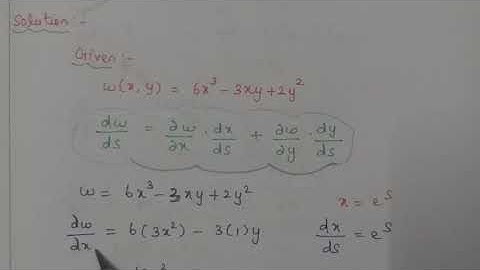 Solution :-
Given :-
w(x, y) = 6x³ - 3xy + 2y²
dw/ds = ∂w/∂x · dx/ds + ∂w/∂y · dy/ds
w = 6x³ - 3xy + 2y²
x = e^s
∂w/∂x = 6(3x²) - 3(1)y
dx/ds = e^s